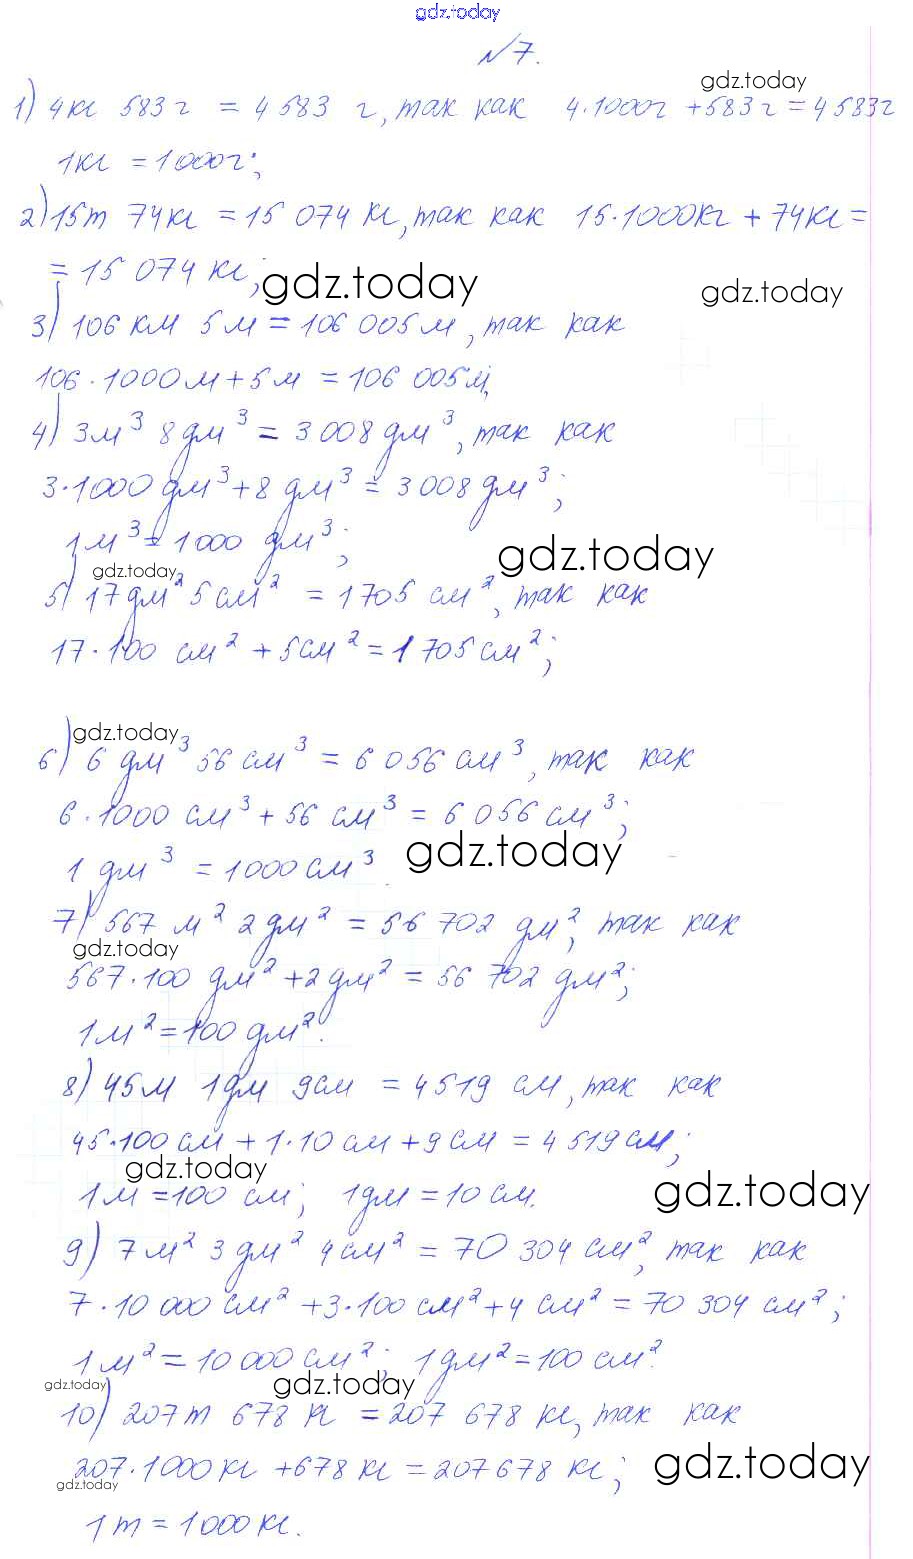 gdz.today
№7.
gdz.today
1) 4кг 583г = 4 583 г, так как 4·1000г + 583г = 4 583г
1кг = 1000г;
2) 15т 74кг = 15 074 кг, так как 15·1000кг + 74кг =
= 15 074 кг;
gdz.today
gdz.today
3) 106 км 5м = 106 005м, так как
106·1000м + 5м = 106 005м;
4) 3м³ 8дм³ = 3 008 дм³, так как
3·1000 дм³ + 8 дм³ = 3 008 дм³;
1м³ = 1000 дм³;
gdz.today
gdz.today
5) 17дм² 5см² = 1705 см², так как
17·100 см² + 5см² = 1 705 см²;
gdz.today
6) 6 дм³ 56 см³ = 6 056 см³, так как
6·1000 см³ + 56 см³ = 6 056 см³;
1 дм³ = 1000 см³
gdz.today
7) 567 м² 2дм² = 56 702 дм², так как
gdz.today
567·100 дм² + 2дм² = 56 702 дм²;
1м² = 100 дм².
8) 45м 1дм 9см = 4519 см, так как
45·100 см + 1·10 см + 9см = 4 519 см;
gdz.today
1м = 100 см; 1дм = 10 см.
gdz.today
9) 7м² 3 дм² 4см² = 70 304 см², так как
7·10 000 см² + 3·100 см² + 4 см² = 70 304 см²;
1м² = 10 000 см²; 1дм² = 100 см².
gdz.today
gdz.today
10) 207т 678 кг = 207 678 кг, так как
207·1000 кг + 678 кг = 207 678 кг;
gdz.today
gdz.today
1т = 1000кг.